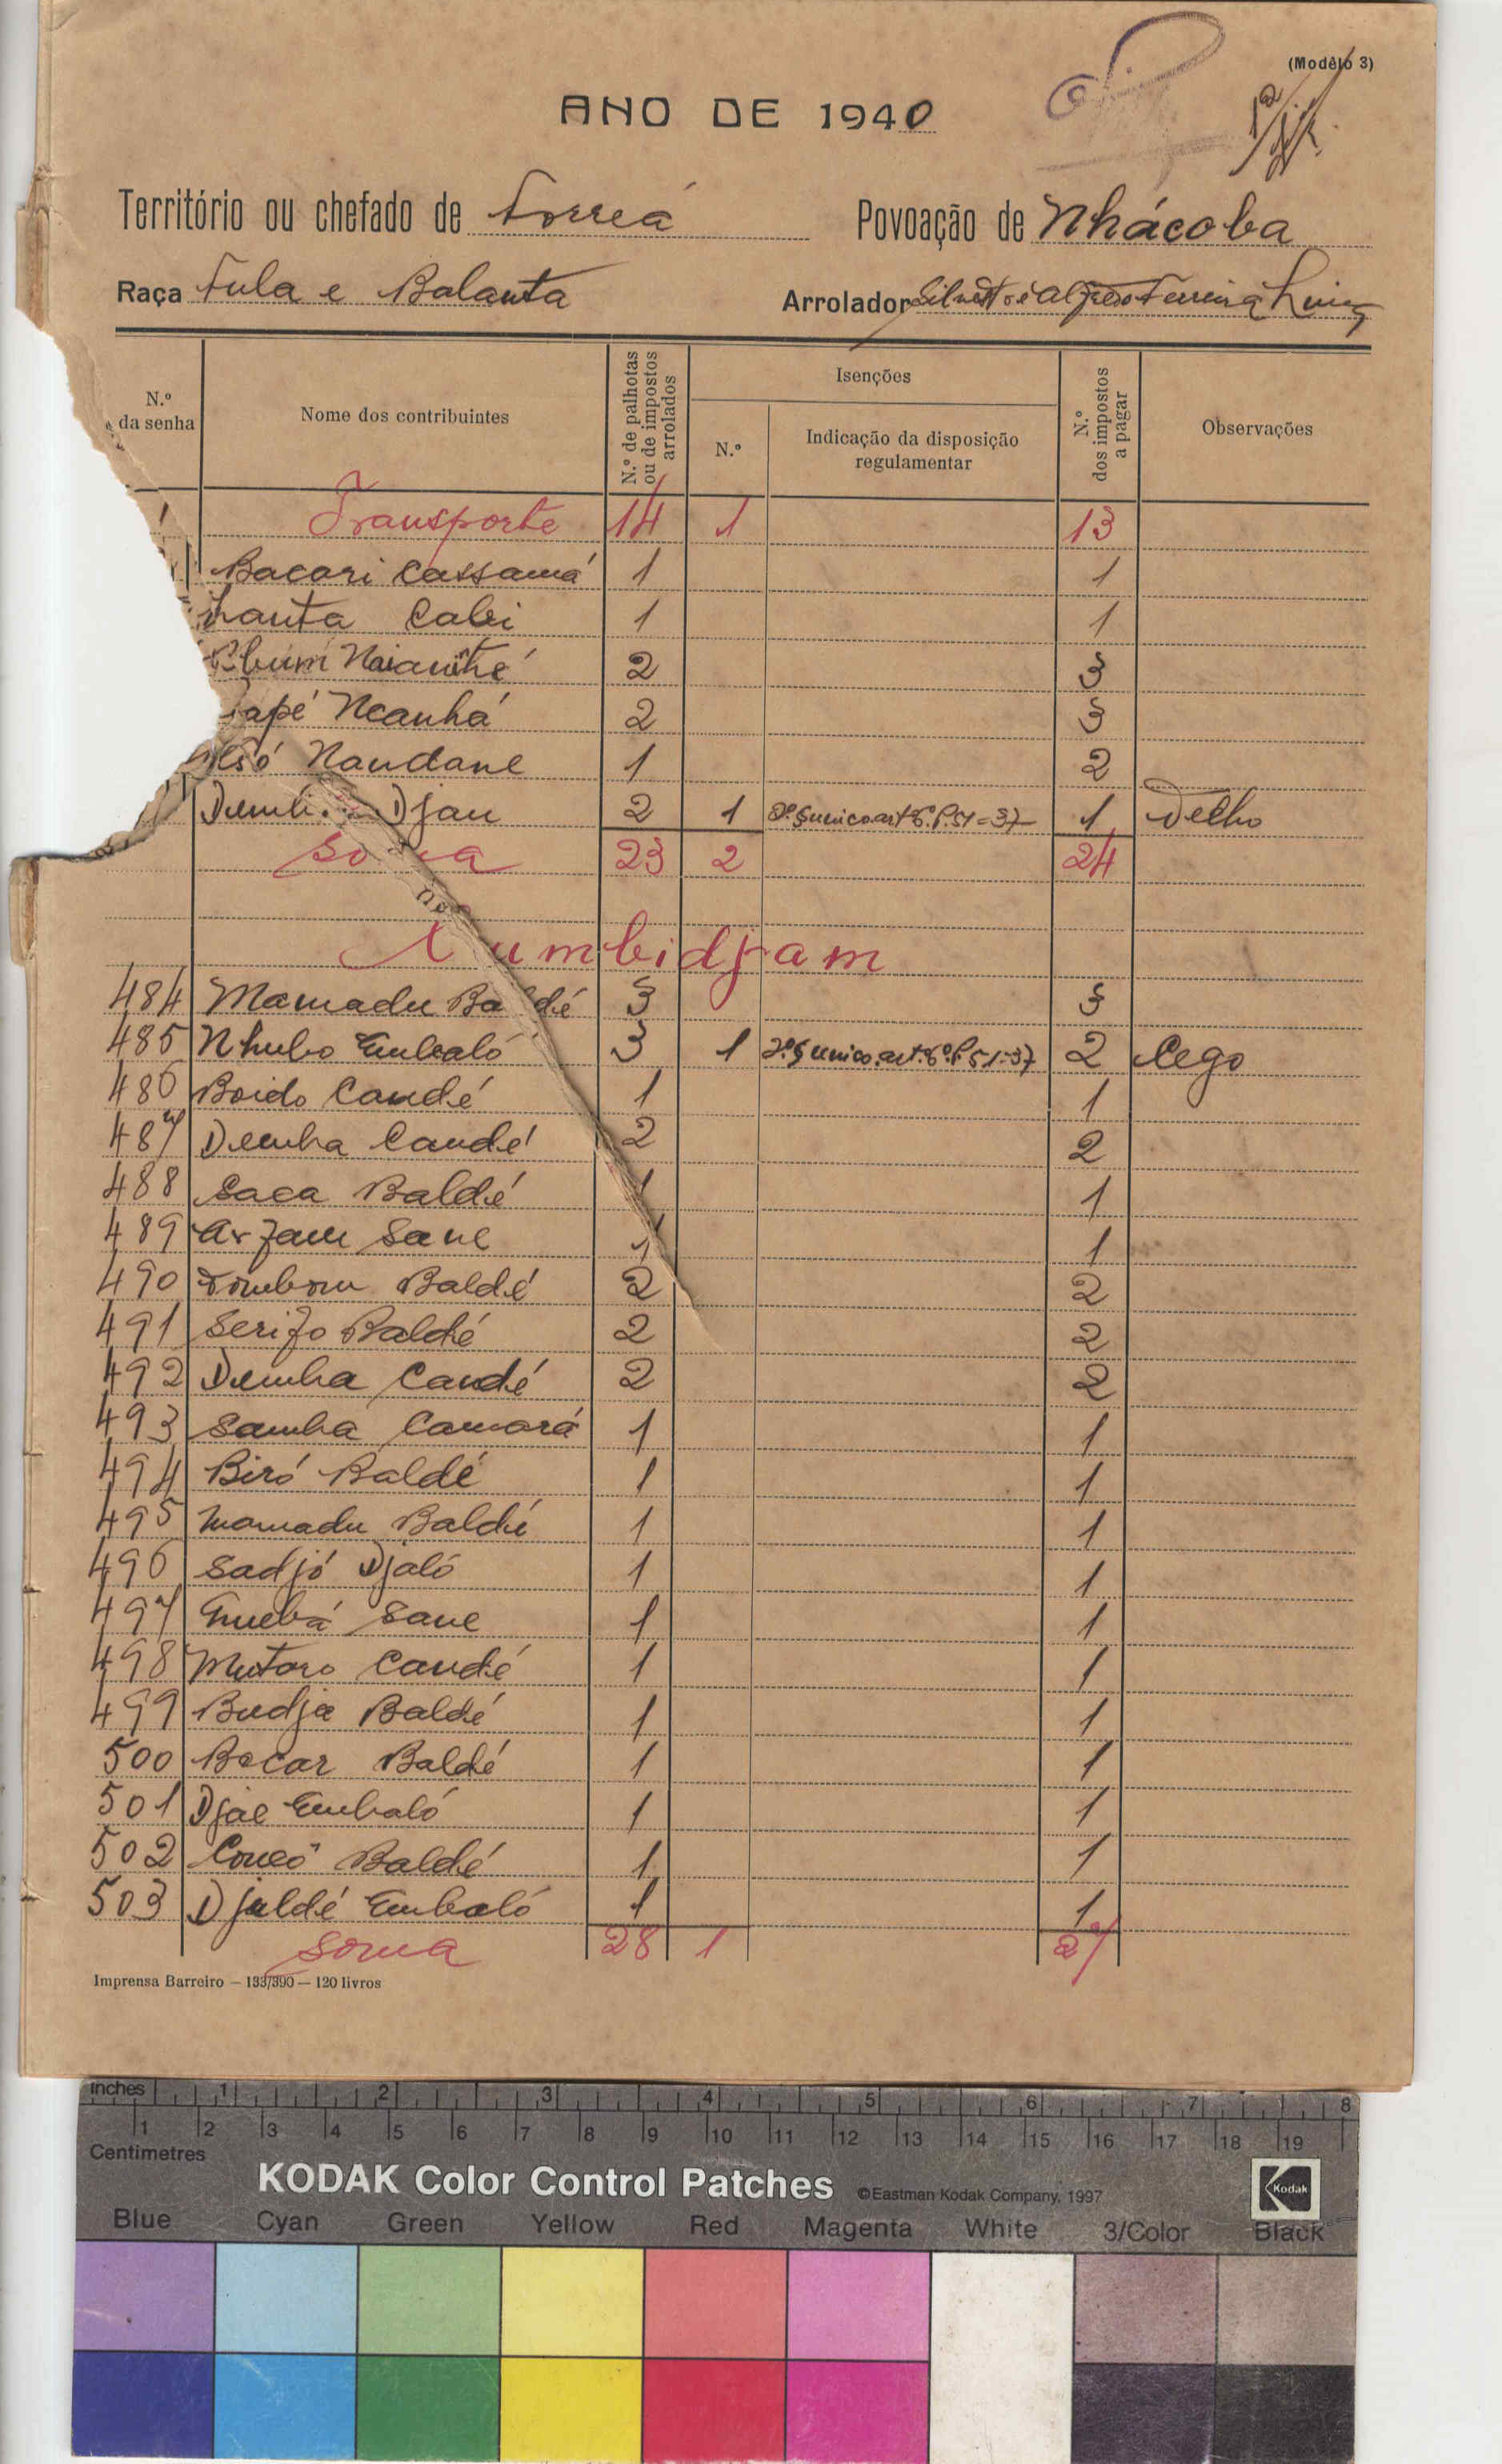 (Modêlo 3)
ANO DE 1940
Território ou chefado de Forreá Povoação de Nhácoba
Raça Fula e Balanta Arrolador Silvestre e Alfredo Ferreira
N.º da senha Nome dos contribuintes N.º de palhotas ou de impostos arrolados Isenções N.º Indicação da disposição regulamentar N.º dos impostos a pagar Observações
Transporte 14 1 13
Bacari Cassamá 1 1
Lanta Cabi 1 1
2 3
Ncanhá 2 3
Nandane 1 2
Djau 2 1 2º § unico art 6º P. 51=37 1 Velho
Soma 23 2 24
Xumbidjam
484 Mamadu Baldé 3 3
485 Nhubo Embaló 3 1 2º § unico. art. 6º P. 51=37 2 Cego
486 Boido Candé 1 1
487 Demba Candé 2 2
488 Saca Baldé 1 1
489 Arfam Sane 1 1
490 Tombom Baldé 2 2
491 Serifo Baldé 2 2
492 Demba Candé 2 2
493 Samba Camará 1 1
494 Biró Baldé 1 1
495 Mamadu Baldé 1 1
496 Sadjó Djaló 1 1
497 Quebá Sane 1 1
498 Mutaro Candé 1 1
499 Budja Baldé 1 1
500 Bocar Baldé 1 1
501 Djae Embaló 1 1
502 Baldé 1 1
503 Djaldé Embaló 1 1
Soma 28 1 27
Imprensa Barreiro — 133/390 — 120 livros
inches 1 2 3 4 5 6 7 8
1 2 3 4 5 6 7 8 9 10 11 12 13 14 15 16 17 18 19
Centimetres
KODAK Color Control Patches ©Eastman Kodak Company, 1997 Kodak
Blue Cyan Green Yellow Red Magenta White 3/Color Black